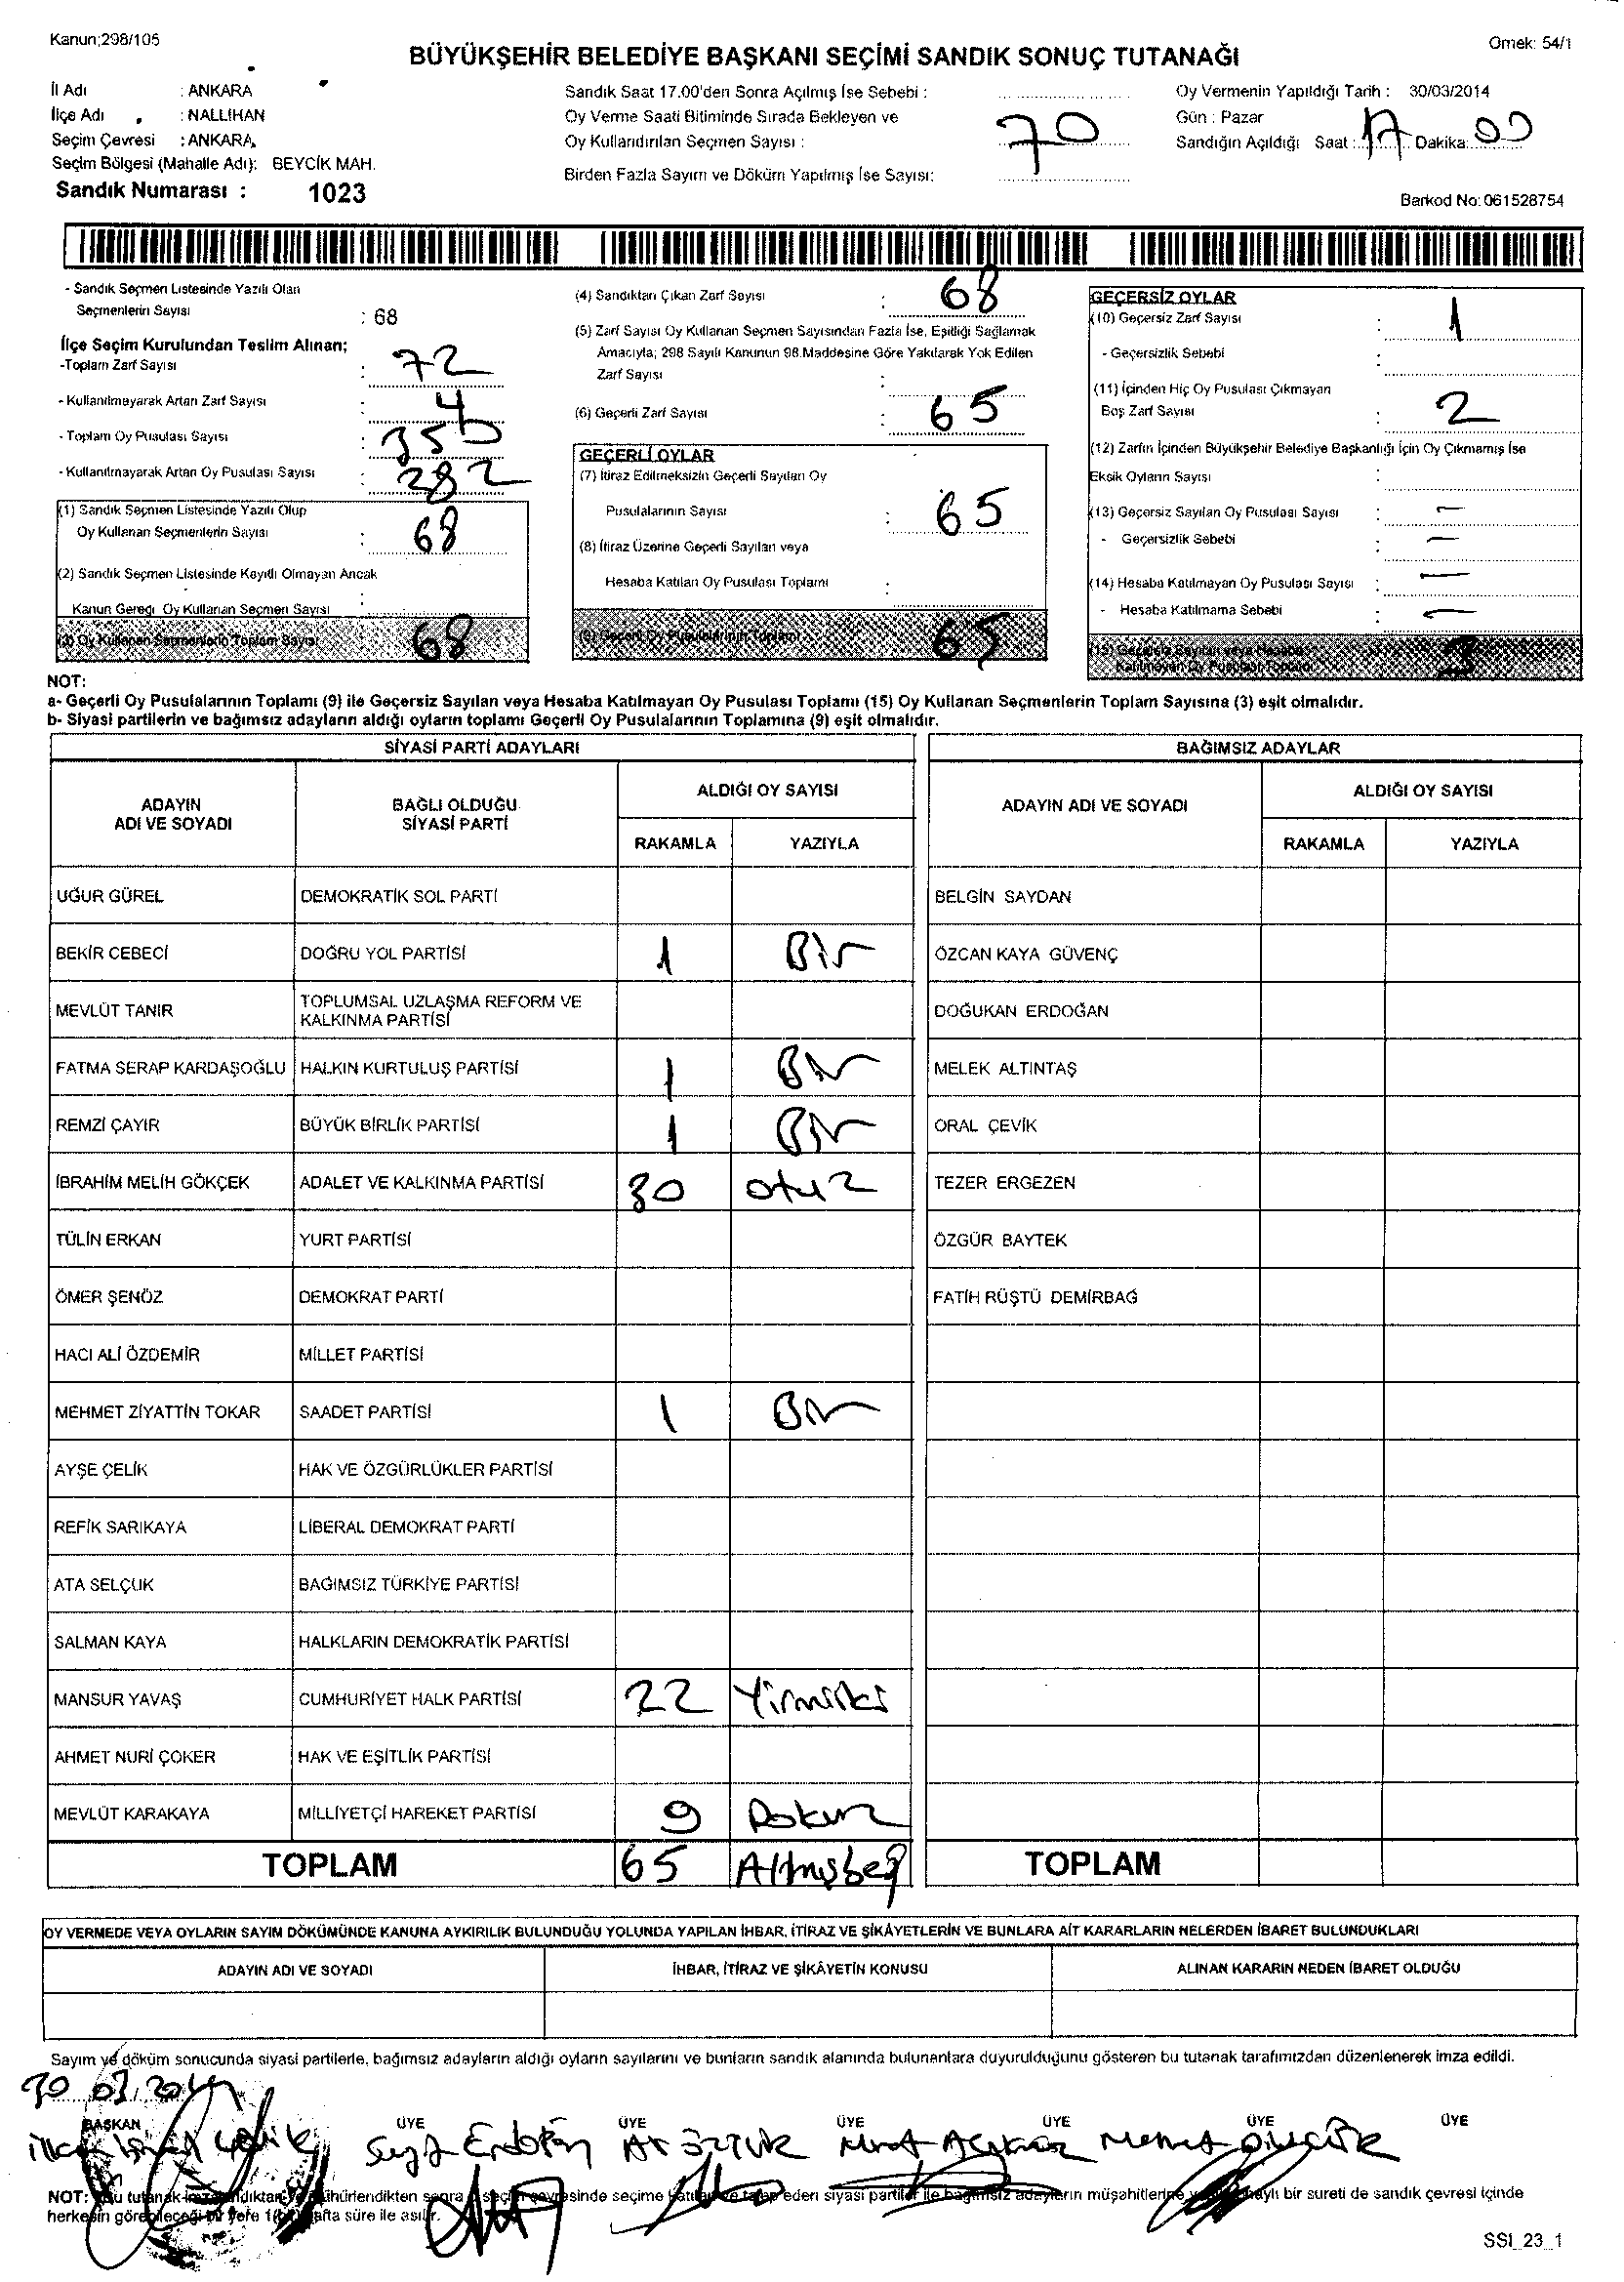 Kanun;298/105
BÜYÜKŞEHİR BELEDİYE BAŞKANI SEÇİMİ SANDIK SONUÇ TUTANAĞI
Örnek: 54/1
İl Adı : ANKARA
İlçe Adı : NALLIHAN
Seçim Çevresi : ANKARA
Seçim Bölgesi (Mahalle Adı): BEYCİK MAH.
Sandık Numarası : 1023
Sandık Saat 17.00'den Sonra Açılmış İse Sebebi :
Oy Verme Saati Bitiminde Sırada Bekleyen ve
Oy Kullandırılan Seçmen Sayısı : 70
Birden Fazla Sayım ve Döküm Yapılmış İse Sayısı:
Oy Vermenin Yapıldığı Tarih : 30/03/2014
Gün : Pazar
Sandığın Açıldığı Saat : 17 Dakika: 00
Barkod No: 061528754
- Sandık Seçmen Listesinde Yazılı Olan
Seçmenlerin Sayısı : 68
İlçe Seçim Kurulundan Teslim Alınan;
-Toplam Zarf Sayısı : 72
- Kullanılmayarak Artan Zarf Sayısı : 4
- Toplam Oy Pusulası Sayısı : 350
- Kullanılmayarak Artan Oy Pusulası Sayısı : 282
(1) Sandık Seçmen Listesinde Yazılı Olup
Oy Kullanan Seçmenlerin Sayısı : 68
(2) Sandık Seçmen Listesinde Kayıtlı Olmayan Ancak
Kanun Gereği Oy Kullanan Seçmen Sayısı :
(3) Oy Kullanan Seçmenlerin Toplam Sayısı 68
(4) Sandıktan Çıkan Zarf Sayısı : 68
(5) Zarf Sayısı Oy Kullanan Seçmen Sayısından Fazla İse, Eşitliği Sağlamak
Amacıyla; 298 Sayılı Kanunun 98.Maddesine Göre Yakılarak Yok Edilen
Zarf Sayısı :
(6) Geçerli Zarf Sayısı : 65
GEÇERLİ OYLAR
(7) İtiraz Edilmeksizin Geçerli Sayılan Oy
Pusulalarının Sayısı : 65
(8) İtiraz Üzerine Geçerli Sayılan veya
Hesaba Katılan Oy Pusulası Toplamı :
(9) Geçerli Oy Pusulalarının Toplamı 65
GEÇERSİZ OYLAR
(10) Geçersiz Zarf Sayısı : 1
- Geçersizlik Sebebi :
(11) İçinden Hiç Oy Pusulası Çıkmayan
Boş Zarf Sayısı : 2
(12) Zarfın İçinden Büyükşehir Belediye Başkanlığı İçin Oy Çıkmamış İse
Eksik Oyların Sayısı :
(13) Geçersiz Sayılan Oy Pusulası Sayısı : —
- Geçersizlik Sebebi : —
(14) Hesaba Katılmayan Oy Pusulası Sayısı : —
- Hesaba Katılmama Sebebi : —
(15) Geçersiz Sayılan veya Hesaba
Katılmayan Oy Pusulası Toplamı 3
NOT:
a- Geçerli Oy Pusulalarının Toplamı (9) ile Geçersiz Sayılan veya Hesaba Katılmayan Oy Pusulası Toplamı (15) Oy Kullanan Seçmenlerin Toplam Sayısına (3) eşit olmalıdır.
b- Siyasi partilerin ve bağımsız adayların aldığı oyların toplamı Geçerli Oy Pusulalarının Toplamına (9) eşit olmalıdır.
SİYASİ PARTİ ADAYLARI
ADAYIN ADI VE SOYADI
BAĞLI OLDUĞU SİYASİ PARTİ
ALDIĞI OY SAYISI
RAKAMLA YAZIYLA
UĞUR GÜREL DEMOKRATİK SOL PARTİ
BEKİR CEBECİ DOĞRU YOL PARTİSİ 1 Bir
MEVLÜT TANIR TOPLUMSAL UZLAŞMA REFORM VE KALKINMA PARTİSİ
FATMA SERAP KARDAŞOĞLU HALKIN KURTULUŞ PARTİSİ 1 Bir
REMZİ ÇAYIR BÜYÜK BİRLİK PARTİSİ 1 Bir
İBRAHİM MELİH GÖKÇEK ADALET VE KALKINMA PARTİSİ 30 otuz
TÜLİN ERKAN YURT PARTİSİ
ÖMER ŞENÖZ DEMOKRAT PARTİ
HACI ALİ ÖZDEMİR MİLLET PARTİSİ
MEHMET ZİYATTİN TOKAR SAADET PARTİSİ 1 Bir
AYŞE ÇELİK HAK VE ÖZGÜRLÜKLER PARTİSİ
REFİK SARIKAYA LİBERAL DEMOKRAT PARTİ
ATA SELÇUK BAĞIMSIZ TÜRKİYE PARTİSİ
SALMAN KAYA HALKLARIN DEMOKRATİK PARTİSİ
MANSUR YAVAŞ CUMHURİYET HALK PARTİSİ 22 Yirmiiki
AHMET NURİ ÇOKER HAK VE EŞİTLİK PARTİSİ
MEVLÜT KARAKAYA MİLLİYETÇİ HAREKET PARTİSİ 9 Dokuz
TOPLAM 65 Altmışbeş
BAĞIMSIZ ADAYLAR
ADAYIN ADI VE SOYADI
ALDIĞI OY SAYISI
RAKAMLA YAZIYLA
BELGİN SAYDAN
ÖZCAN KAYA GÜVENÇ
DOĞUKAN ERDOĞAN
MELEK ALTINTAŞ
ORAL ÇEVİK
TEZER ERGEZEN
ÖZGÜR BAYTEK
FATİH RÜŞTÜ DEMİRBAĞ
TOPLAM
OY VERMEDE VEYA OYLARIN SAYIM DÖKÜMÜNDE KANUNA AYKIRILIK BULUNDUĞU YOLUNDA YAPILAN İHBAR, İTİRAZ VE ŞİKÂYETLERİN VE BUNLARA AİT KARARLARIN NELERDEN İBARET BULUNDUKLARI
ADAYIN ADI VE SOYADI İHBAR, İTİRAZ VE ŞİKÂYETİN KONUSU ALINAN KARARIN NEDEN İBARET OLDUĞU
Sayım ve döküm sonucunda siyasi partilerle, bağımsız adayların aldığı oyların sayılarını ve bunların sandık alanında bulunanlara duyurulduğunu gösteren bu tutanak tarafımızdan düzenlenerek imza edildi.
30 03 2014
BAŞKAN ÜYE ÜYE ÜYE ÜYE ÜYE ÜYE
Çelik ÖZTÜRK
NOT: Bu tutanak sonra seçim çevresinde seçime katılan ve talep eden siyasi partiler ile bağımsız adayların müşahitlerine onaylı bir sureti de sandık çevresi içinde
herkesin görebileceği bir yere 1 hafta süre ile asılır.
SSI_23_1